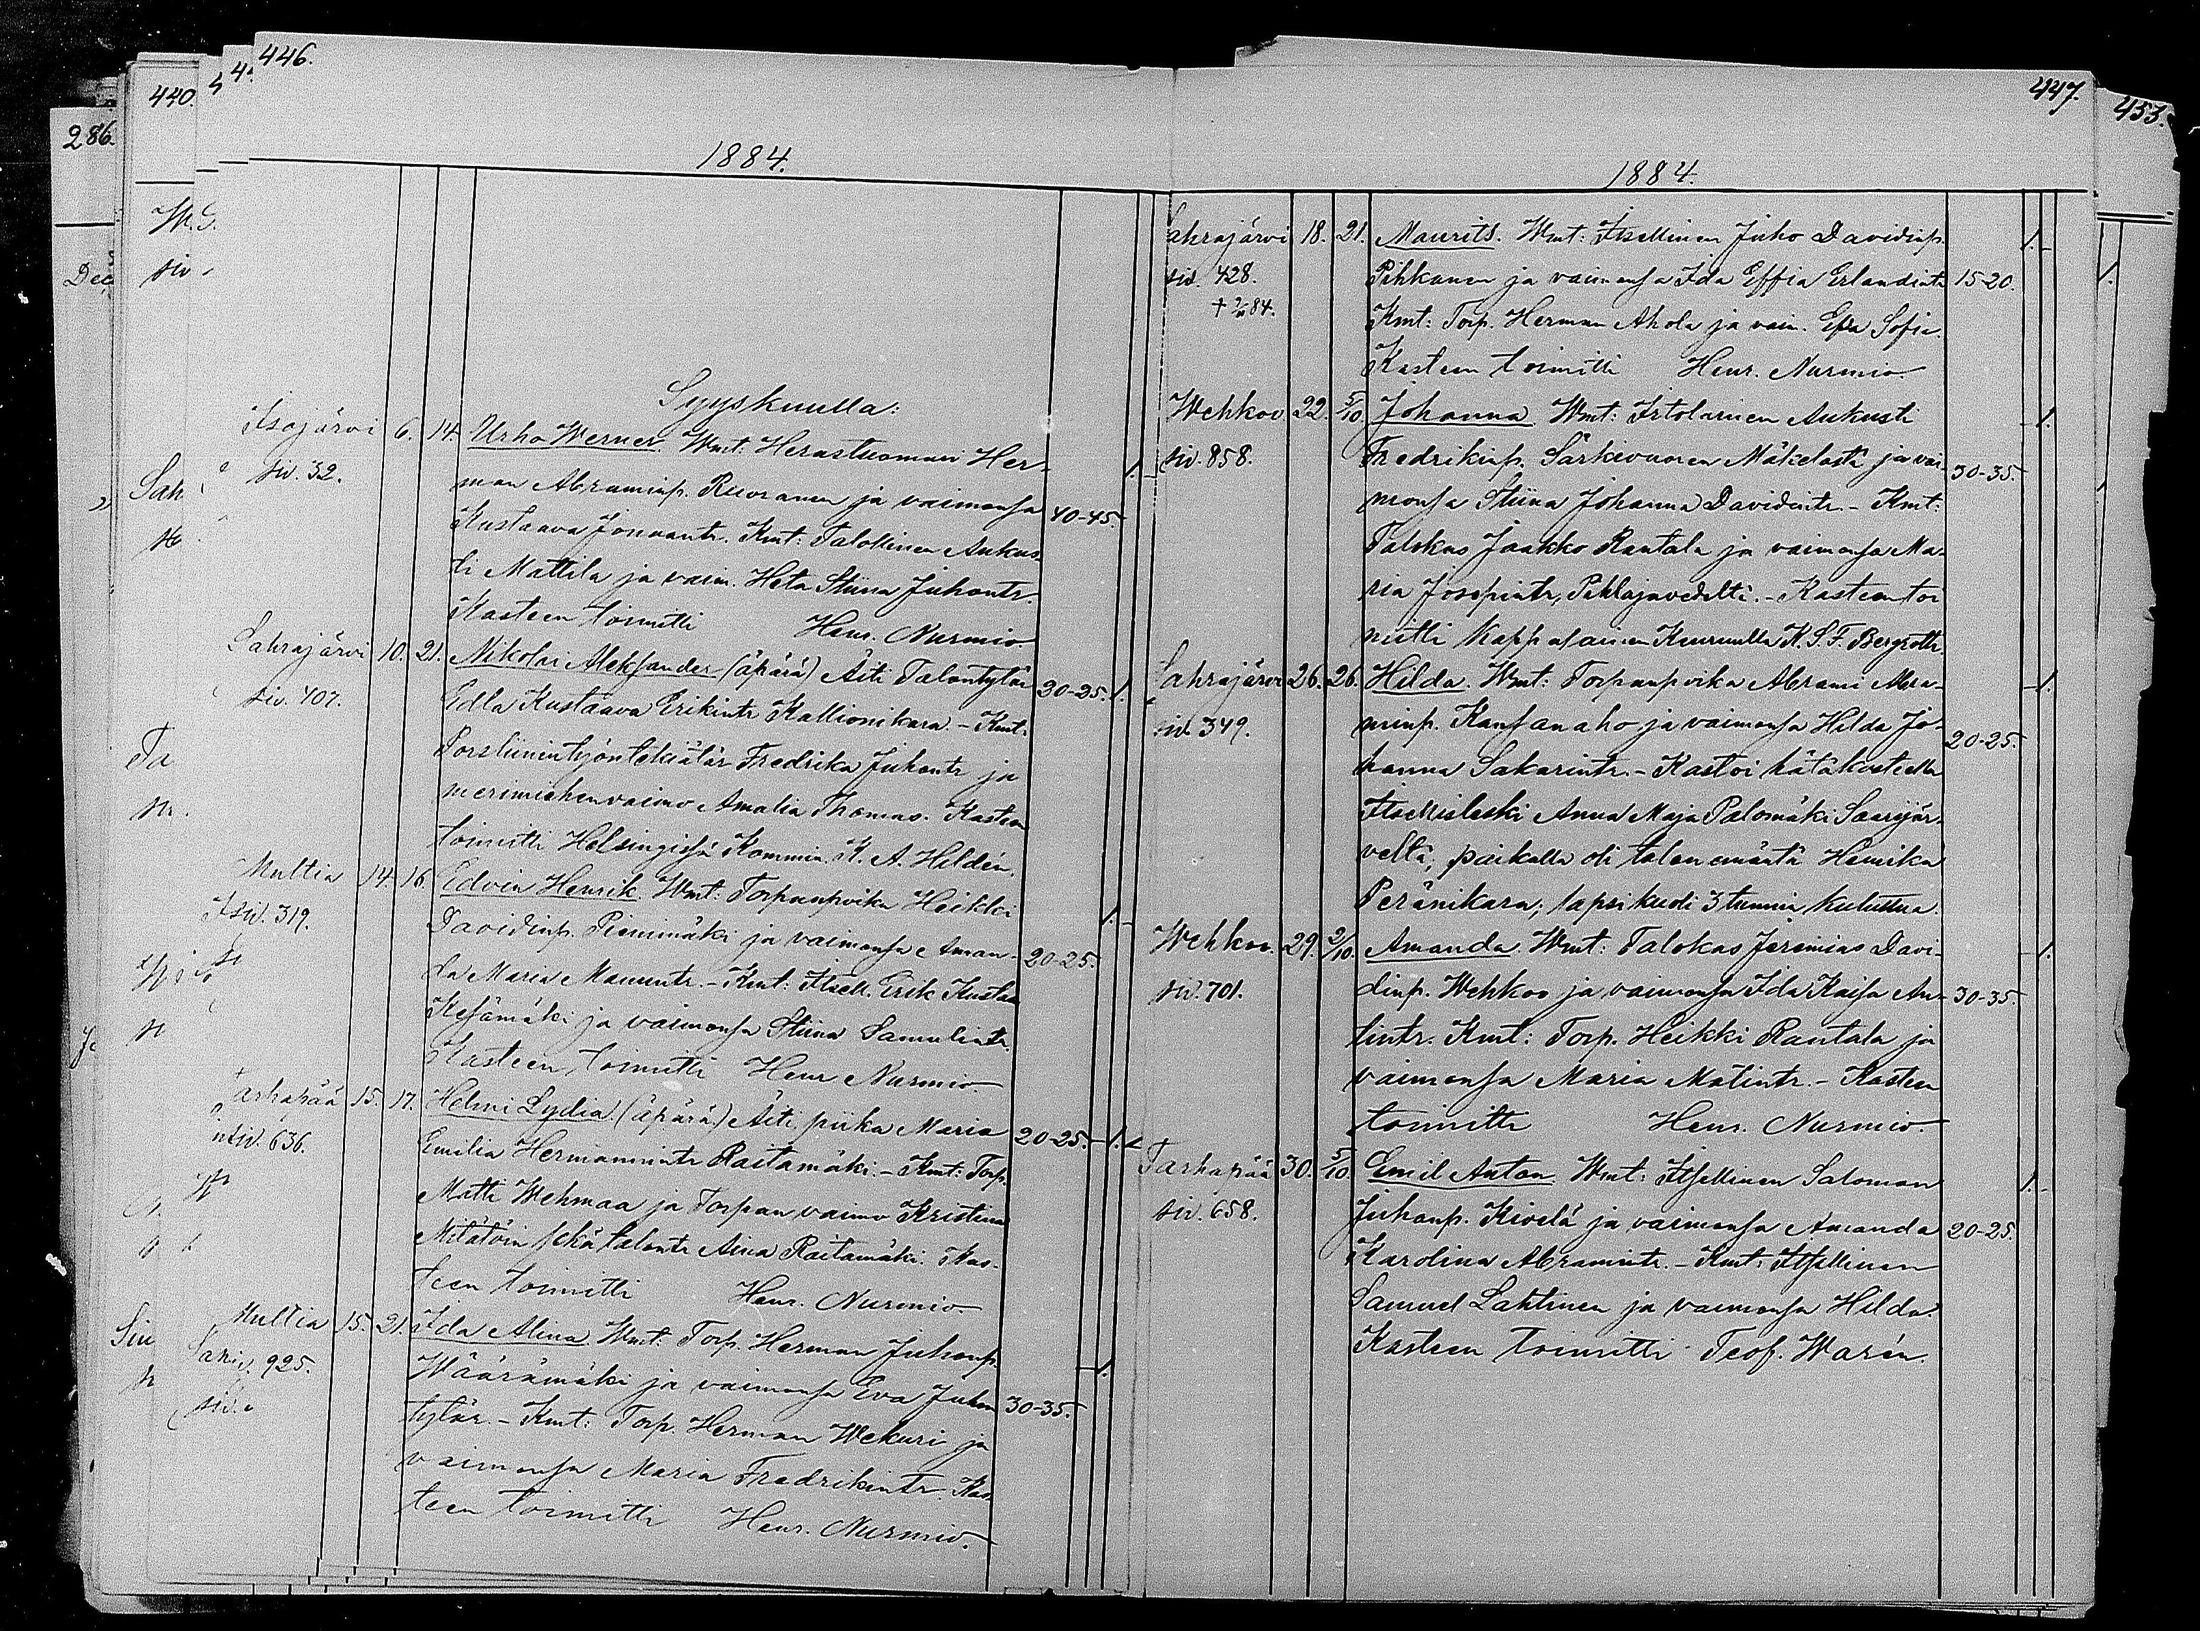 446.
440.
286.
1884.
Syyskuulla:
Isojärvi 6. 14. Urho Werner. Wmt: Herastuomari Her-
siv. 32. man Abraminp. Ruoranen ja vaimonsa 40-45. 1.
Kustaava Joonantr. Kmt: Talollinen Aukus-
ti Mattila ja vaim. Heta Stiina Juhontr.
Kasteen toimitti Henr. Nurmio.
Sahrajärvi 10. 21. Nikolai Aleksander (äpärä) Äiti Talontytär
siv. 407. Edla Kustaava Erikintr Kallionikara. - Kmt: 1.
Porsliinintyöntekiätär Fredrika Juhontr ja
merimiehenvaimo Amalia Thomas. Kasteen
toimitti Helsingissä Kommin. K. A. Hildén.
Multia 14. 16. Edvin Henrik. Wmt: Torpanpoika Heikki
siv. 319. Davidinp. Pienmäki ja vaimonsa Aman- 20-25. 1.
da Maria Manuntr. - Kmt: Itsell. Erik Kustaa
Kesämäki ja vaimonsa Stiina Samulintr.
Kasteen toimitti Henr Nurmio
Tarhapää 15. 17. Helmi Lydia. (äpärä) Äiti piika Maria 20-25. 1.
siv. 636. Emilia Hermannintr Raitamäki. - Kmt: Torp.
Matti Wehmaa ja Torpan vaimo Kristiina
Mitätöin sekä talontr Aina Raitamäki. Kas-
teen toimitti Henr. Nurmio
Multia 15. 21. Ida Alina. Wmt: Torp. Herman Juhonp.
siv. 925. Wäärämäki ja vaimonsa Eva Juhon 30-35. 1.
tytär. - Kmt: Torp. Herman Wekuri ja
vaimonsa Maria Fredrikintr. Kas-
teen toimitti Henr. Nurmio.
447.
453.
1884.
Sahrajärvi 18. 21. Maurits. Wmt: Itsellinen Juho Davidinp. 1.
siv. 428. Pihkanen ja vaimonsa Ida Effia Erlandintr 15-20.
84. Kmt: Torp. Herman Ahola ja vaim. Eva Sofia.
Kasteen toimitti Henr. Nurmio.
Wehkoo 22. 5/10 Johanna. Wmt: Irtolainen Aukusti 1.
siv. 858. Fredrikinp. Särkivuoren Mäkelästä ja vai- 30-35.
monsa Stiina Johanna Davidintr. - Kmt:
Talokas Jaakko Rantala ja vaimonsa Ma-
ria Josepintr, Pihlajavedelti. - Kasteen toi
mitti Kappalainen Keuruulla K. S. F. Bergroth.
Sahrajärvi 26. 26. Hilda. Wmt: Torpanpoika Abrami Abra- 1.
siv. 349. minp. Kansanaho ja vaimonsa Hilda Jo- 20-25.
hanna Sakarintr. - Kastoi hätäkasteella
Itsellisleski Anna Maja Palomäki Saarijär-
veltä, paikalla oli talon emäntä Henrika
Peränikara; lapsi kuoli 3 tunnin kuluttua.
Wehkoo. 29. 2/10. Amanda Wmt: Talokas Jeremias Davi- 1.
siv. 701. dinp. Wehkoo ja vaimonsa Ida Kaisa An- 30-35.
tintr. Kmt: Torp. Heikki Rantala ja
vaimonsa Maria Matintr. - Kasteen
toimitti Henr. Nurmio.
Tarhapää 30. 5/10. Emil Anton. Wmt: Itsellinen Saloman 1.
siv. 658. Juhonp. Kivelä ja vaimonsa Amanda 20-25.
Karolina Abramintr. - Kmt: Itsellinen
Samuel Lahtinen ja vaimonsa Hilda.
Kasteen toimitti Teof. Warén.